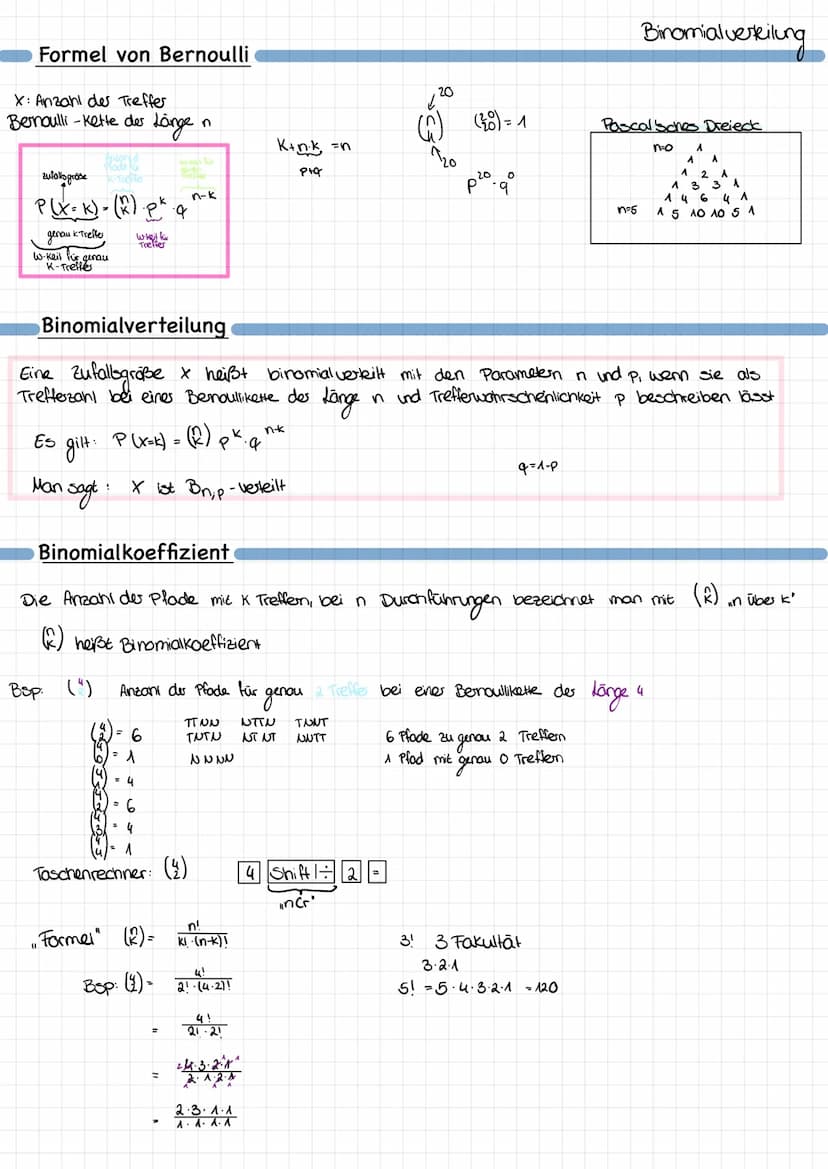 Binomialverteilung
Formel von Bernoulli
X: Anzahl der Treffer
Bernoulli-Kette der Länge n
Zufallsgröße
P(X=k) = (n k) · p^k · q^n-k
genau k Treffer
W-keit für Treffer
W-keit für genau
K-Treffer
K+n-k =n
p+q
20
(n k)
20
(20 20) = 1
p^20 · q^0
Pascalsches Dreieck
n=0 1
1 1
1 2 1
1 3 3 1
1 4 6 4 1
n=5 1 5 10 10 5 1
Binomialverteilung
Eine Zufallsgröße X heißt binomialverteilt mit den Parametern n und p, wenn sie als
Trefferzahl bei einer Bernoullikette der Länge n und Trefferwahrscheinlichkeit p beschreiben lässt
Es gilt: P(X=k) = (n k) p^k · q^n-k
q=1-p
Man sagt: X ist Bn,p-verteilt
Binomialkoeffizient
Die Anzahl der Pfade mit K Treffern, bei n Durchführungen bezeichnet man mit (n k) „n über k'
(n k) heißt Binomialkoeffizient
Bsp: (4 2) Anzahl der Pfade für genau 2 Treffer bei einer Bernoullikette der Länge 4
(4 2) = 6 TTNN NTTN TNNT 6 Pfade zu genau 2 Treffern
TNTN NTNT NNTT
(4 0) = 1 NNNN 1 Pfad mit genau 0 Treffern
(4 1) = 4
(4 2) = 6
(4 3) = 4
(4 4) = 1
Taschenrechner: (4 2) 4 Shift ÷ 2 =
„nCr'
„Formel" (n k) = n! / k! · (n-k)!
3! 3 Fakultät
3·2·1
5! = 5·4·3·2·1 = 120
Bsp: (4 2) = 4! / 2! · (4-2)!
= 4! / 2! · 2!
= 4·3·2·1 / 2·1·2·1
= 2·3·1·1 / 1·1·1·1